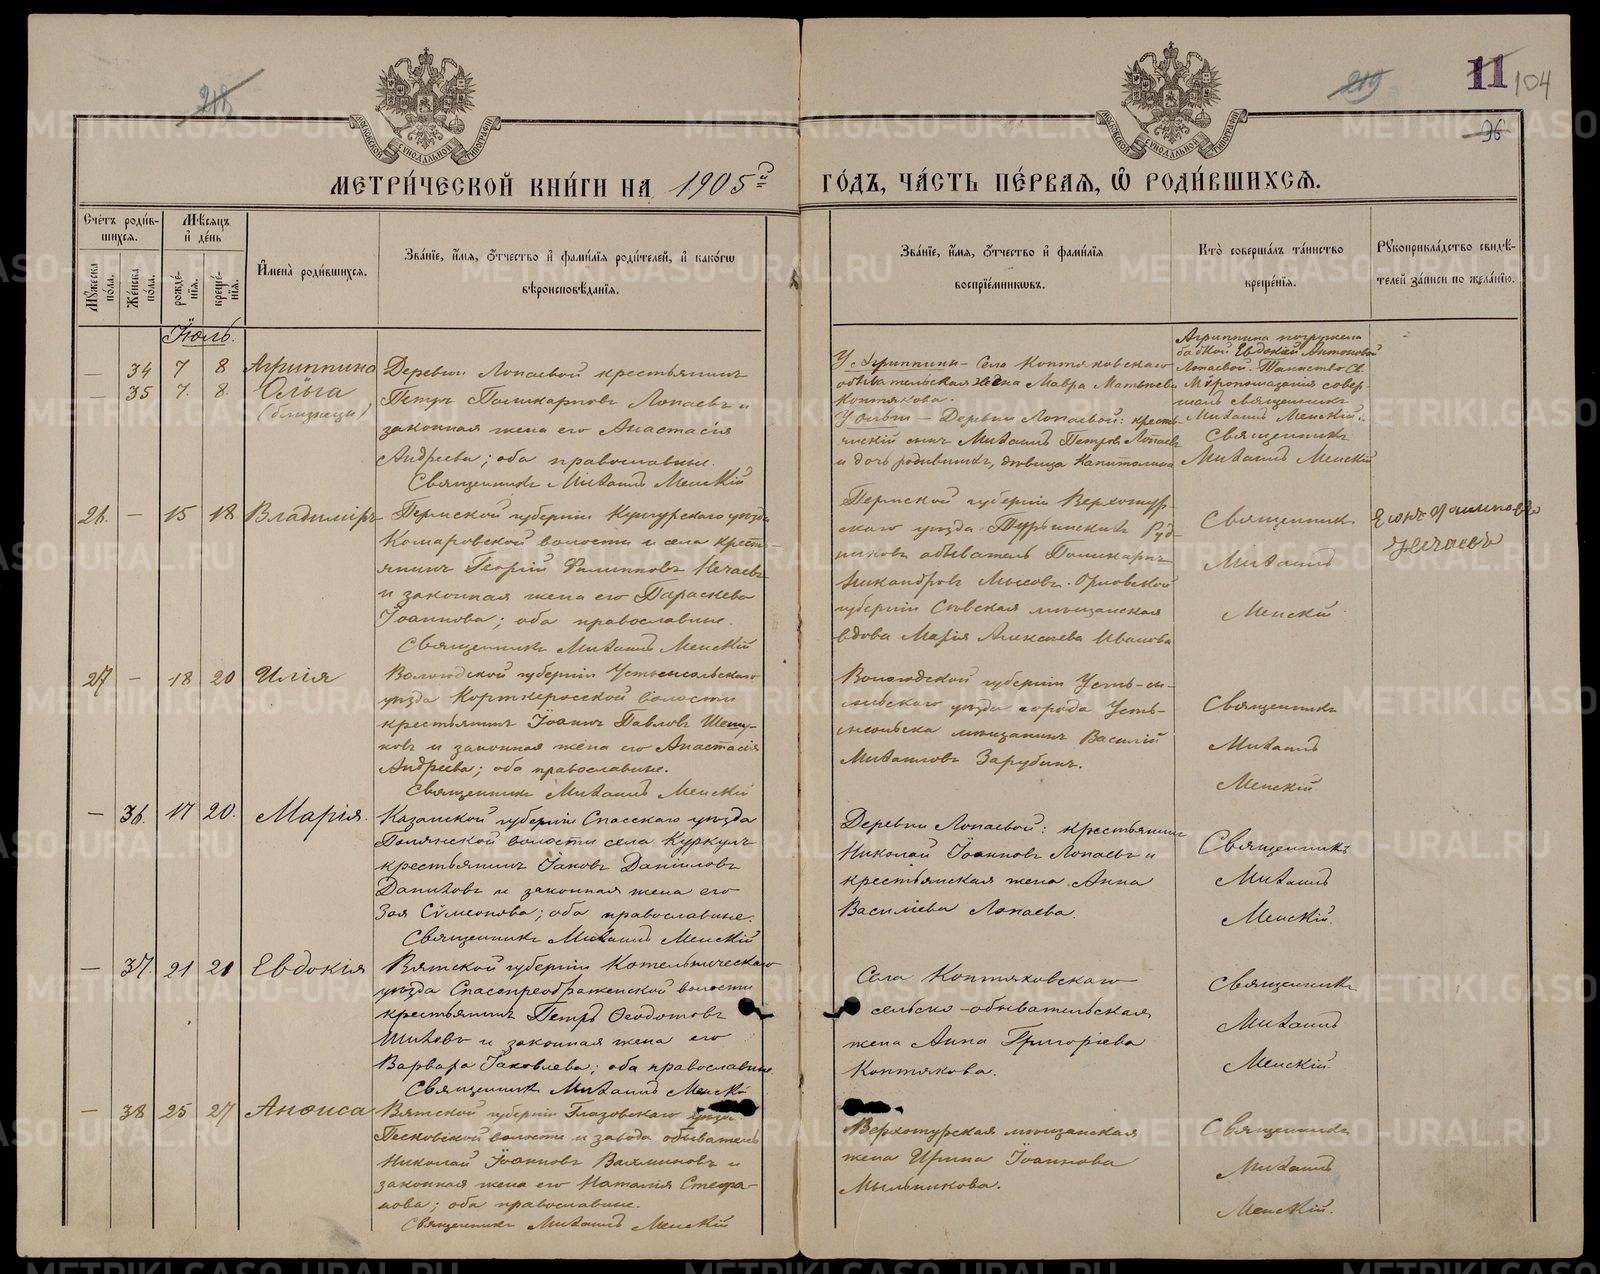 218
219
11
104
96
МЕТРИ́ЧЕСКОЙ КНИ́ГИ НА 1905й ГО́ДЪ, ЧА́СТЬ ПЕ́РВАЯ, Ѡ РОДИ́ВШИХСЯ.
Сче́тъ роди́в-
шихся.
Мꙋ́жеска по́ла.
Же́нска по́ла.
Мѣ́сяцъ
и҆ де́нь
рожде́-
нїя.
креще́-
нїя.
И҆мена̀ роди́вшихся.
Зва́нїе, и҆́мя, ѻ҆́тчество и҆ фами́лїя роди́телей, и҆ како́гѡ
вѣроисповѣ́данїя.
Зва́нїе, и҆́мя, ѻ҆́тчество и҆ фами́лїя
воспрїе́мниковъ.
Кто̀ соверша́лъ та́инство
креще́нїя.
Рꙋкоприкла́дство свидѣ́-
телей за́писи по жела́нїю.
Іюль.
— 34 7 8 Агриппина
— 35 7. 8. Ольга
(близнецы)
Деревни Лопаевой крестьянинъ
Петръ Поликарповъ Лопаевъ и
законная жена его Анастасія
Андреева; оба православные.
Священникъ Михаилъ Менскій
У Агриппины – Село Коптяковскаго
обывательская жена Мавра Матвѣева
Коптякова.
У Ольги – Деревни Лопаевой: кресть-
янскій сынъ Михаилъ Петровъ Лопаевъ
и дочь родившихъ, дѣвица Капиталина
Агриппина погружена
бабкой Евдокіей Антоновой
Лопаевой. Таинство Св.
Мѵропомазания совер-
шалъ священникъ
Михаилъ Менскій.
Священникъ
Михаилъ Менскій
26. — 15 18 Владиміръ
Пермской губерніи Кунгурскаго уѣзда
Комаровской волости и села кресть-
янинъ Георгій Филипповъ Нечаевъ
и законная жена его Параскева
Іоаннова; оба православные.
Священникъ Михаилъ Менскій
Пермской губерніи Верхотур-
скаго уѣзда Турьинскихъ Руд-
никовъ обыватель Поликарпъ
Никандровъ Мысовъ. Орловской
губерніи Сѣвская мѣщанская
вдова Марія Алексѣева Иванова
Священникъ
Михаилъ
Менскій
Егоръ Филиповъ
Нечаевъ
27 — 18 20 Илія
Вологодской губерніи Устьсысольскаго
уѣзда Корткеросской волости
крестьянинъ Іоаннъ Павловъ
и законная жена его Анастасія
Андреева; оба православные.
Священникъ Михаилъ Менскій
Вологодской губерніи Усть-сы-
сольскаго уѣзда города Усть-
сысольска мѣщанинъ Василій
Михаиловъ Зарубинъ.
Священникъ
Михаилъ
Менскій
— 36. 17 20. Марія.
Казанской губерніи Спасскаго уѣзда
Полянской волости села Куркуль
крестьянинъ Іаковъ Даніиловъ
Даниховъ и законная жена его
Зоя Сѵмеонова; оба православные.
Священникъ Михаилъ Менскій
Деревни Лопаевой: крестьянинъ
Николай Іоанновъ Лопаевъ и
крестьянская жена Анна
Василіева Лопаева.
Священникъ
Михаилъ
Менскій.
— 37. 21 21 Евдокія
Вятской губерніи Котельническаго
уѣзда Спасопреображенской волости
крестьянинъ Петръ Ѳеодотовъ
Шиховъ и законная жена его
Варвара Іаковлева; оба православные.
Священникъ Михаилъ Менскій
Села Коптяковскаго
сельско-обывательская
жена Анна Григоріева
Коптякова.
Священникъ
Михаилъ
Менскій.
— 38 25 27 Анѳиса
Вятской губерніи Глазовскаго уѣзда
Песковской волости и завода обыватель
Николай Іоанновъ Вахминовъ и
законная жена его Наталія Стефа-
нова; оба православные.
Священникъ Михаилъ Менскій
Верхотурская мѣщанская
жена Ирина Іоаннова
Мыльникова.
Священникъ
Михаилъ
Менскій.
METRIKI.GASO-URAL.RU